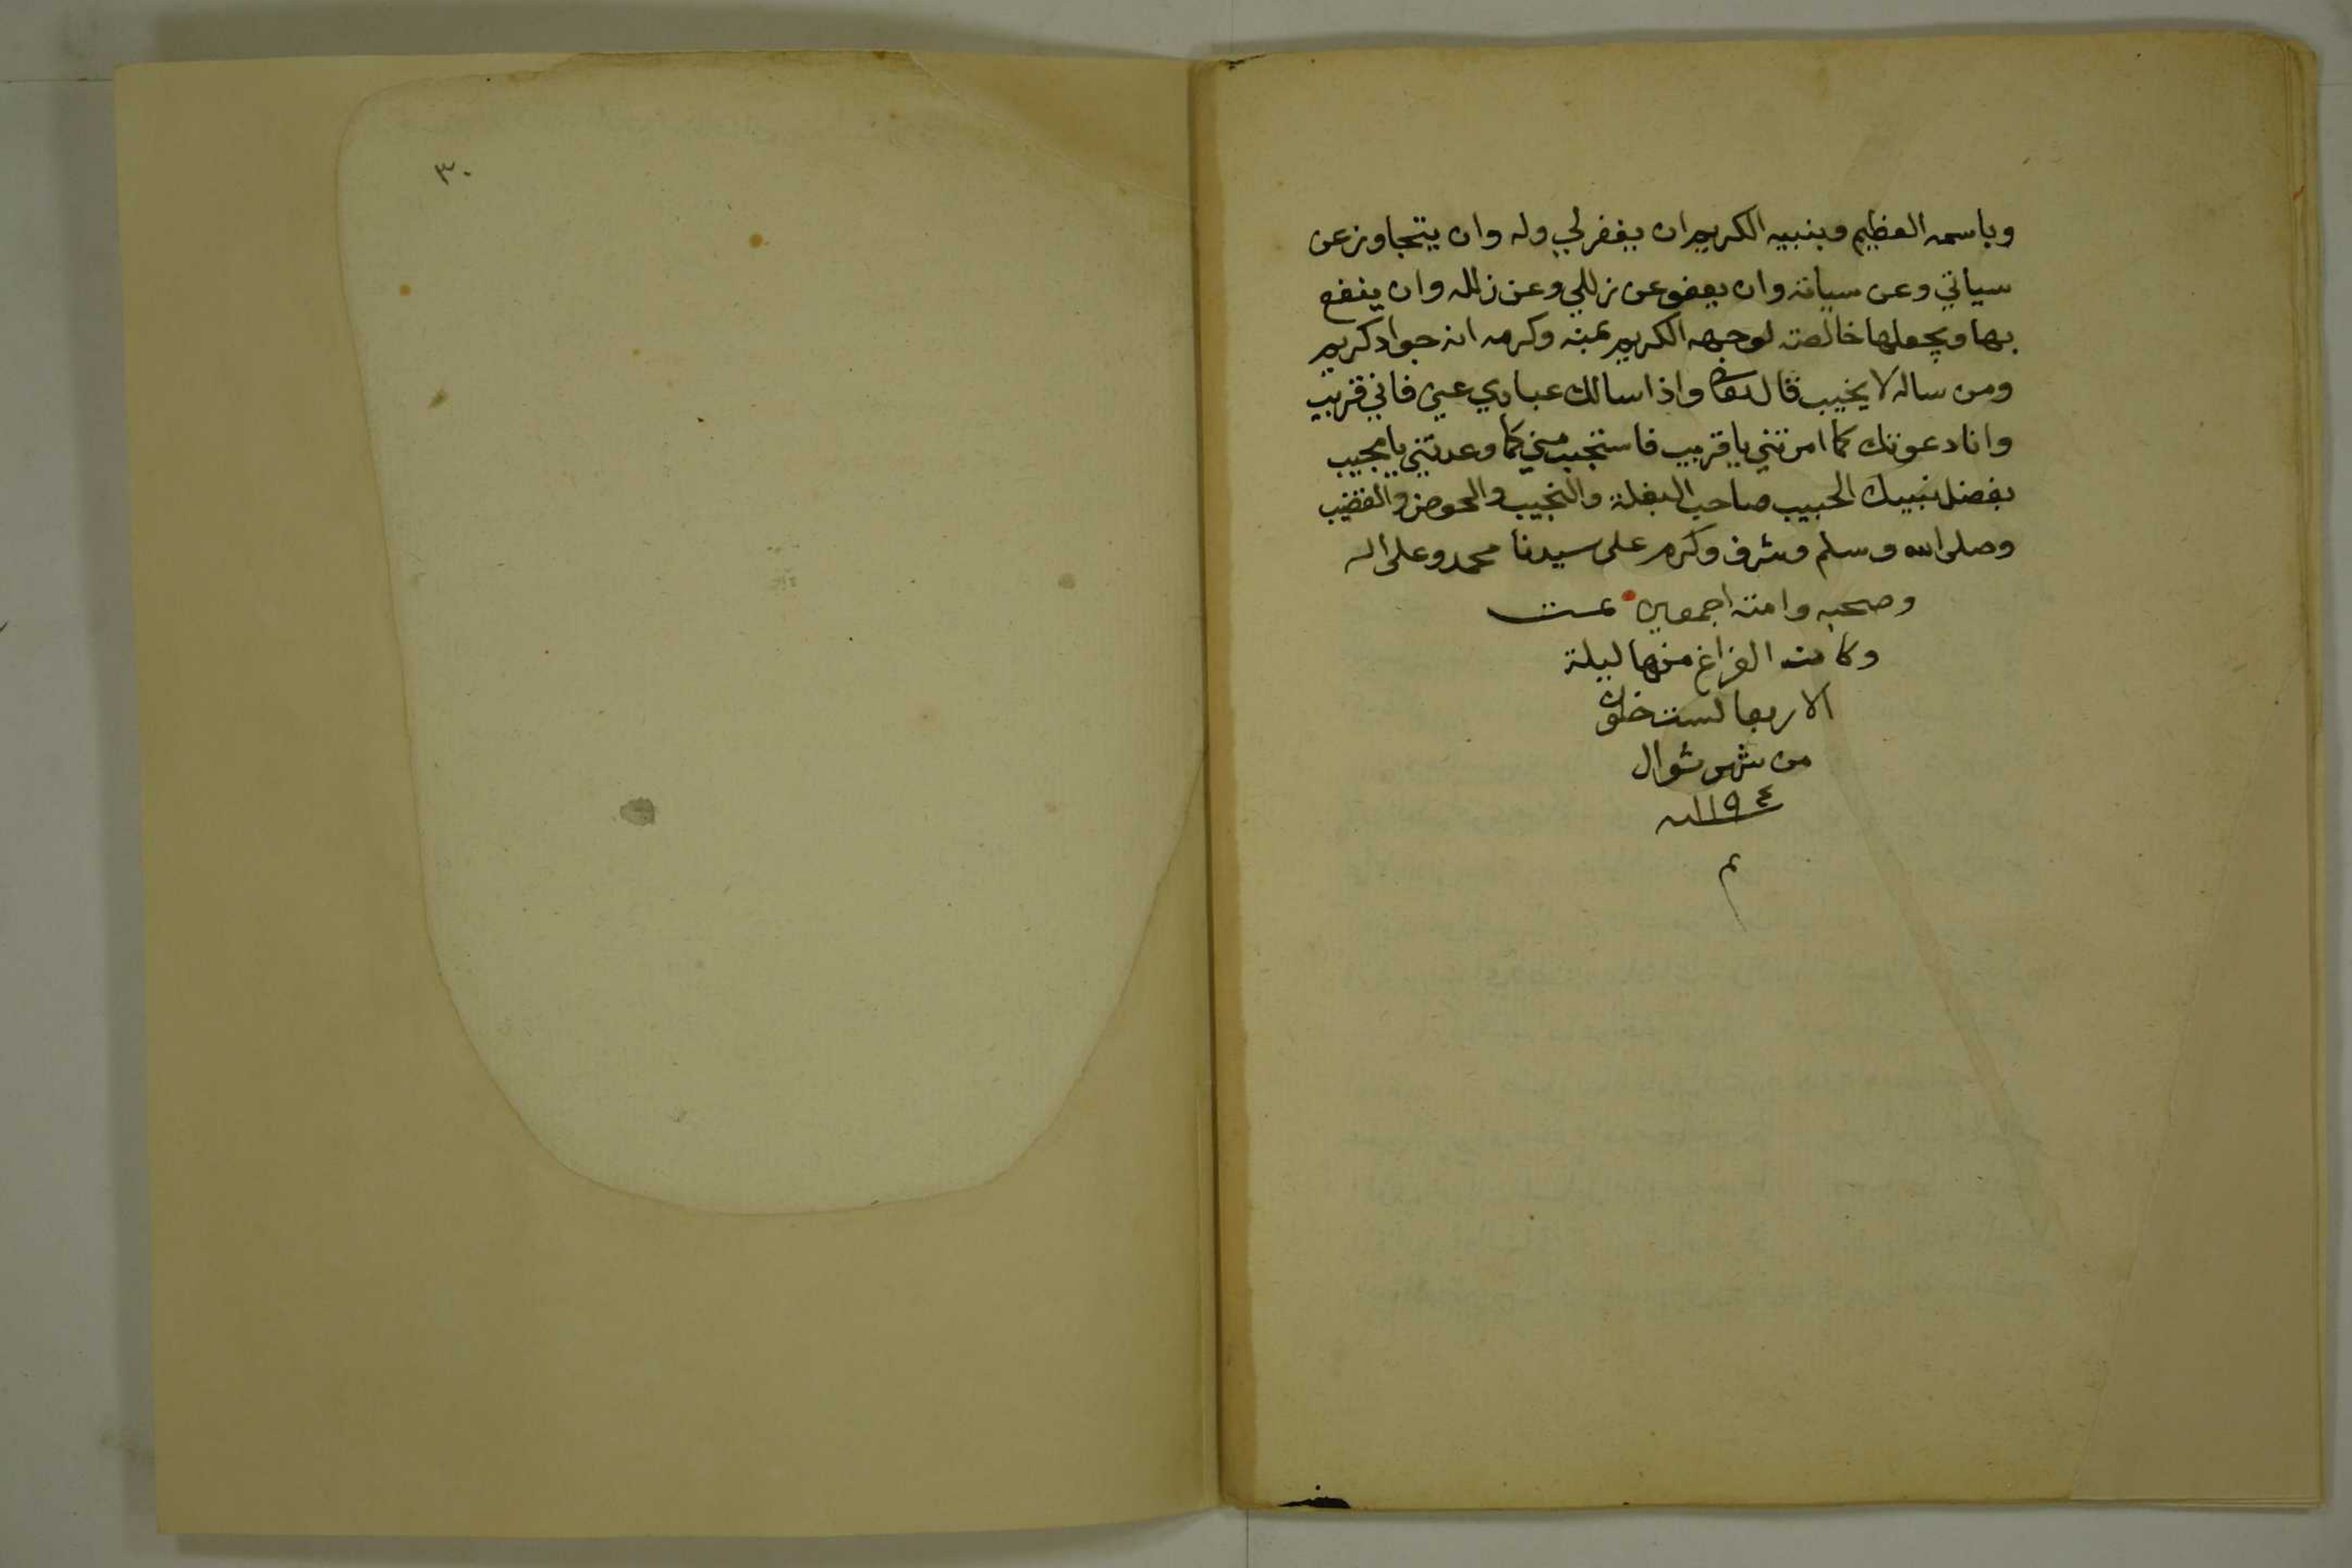 وباسمه العظيم وبنبيه الكريم ان يغفر لي وله وان يتجاوز عن
سياتي وعن سياته وان يعفو عن زللي وعن زلله وان ينفع
بها ويجعلها خالصة لوجهه الكريم بمنه وكرمه انه جواد كريم
ومن ساله لا يخيب قال تعالى واذا سالك عبادي عني فاني قريب
وانا دعوتك كما امرتني يا قريب فاستجب مني كما وعدتني يا مجيب
بفضل نبيك الحبيب صاحب البغلة والنجيب والحوض والقضيب
وصلى الله وسلم وشرف وكرم على سيدنا محمد وعلى اله
وصحبه وامته اجمعين تمت
وكانت الفراغ منها ليلة
الاربعا لست خلون
من شهر شوال
١١٩٤ سنه
م
٣٠